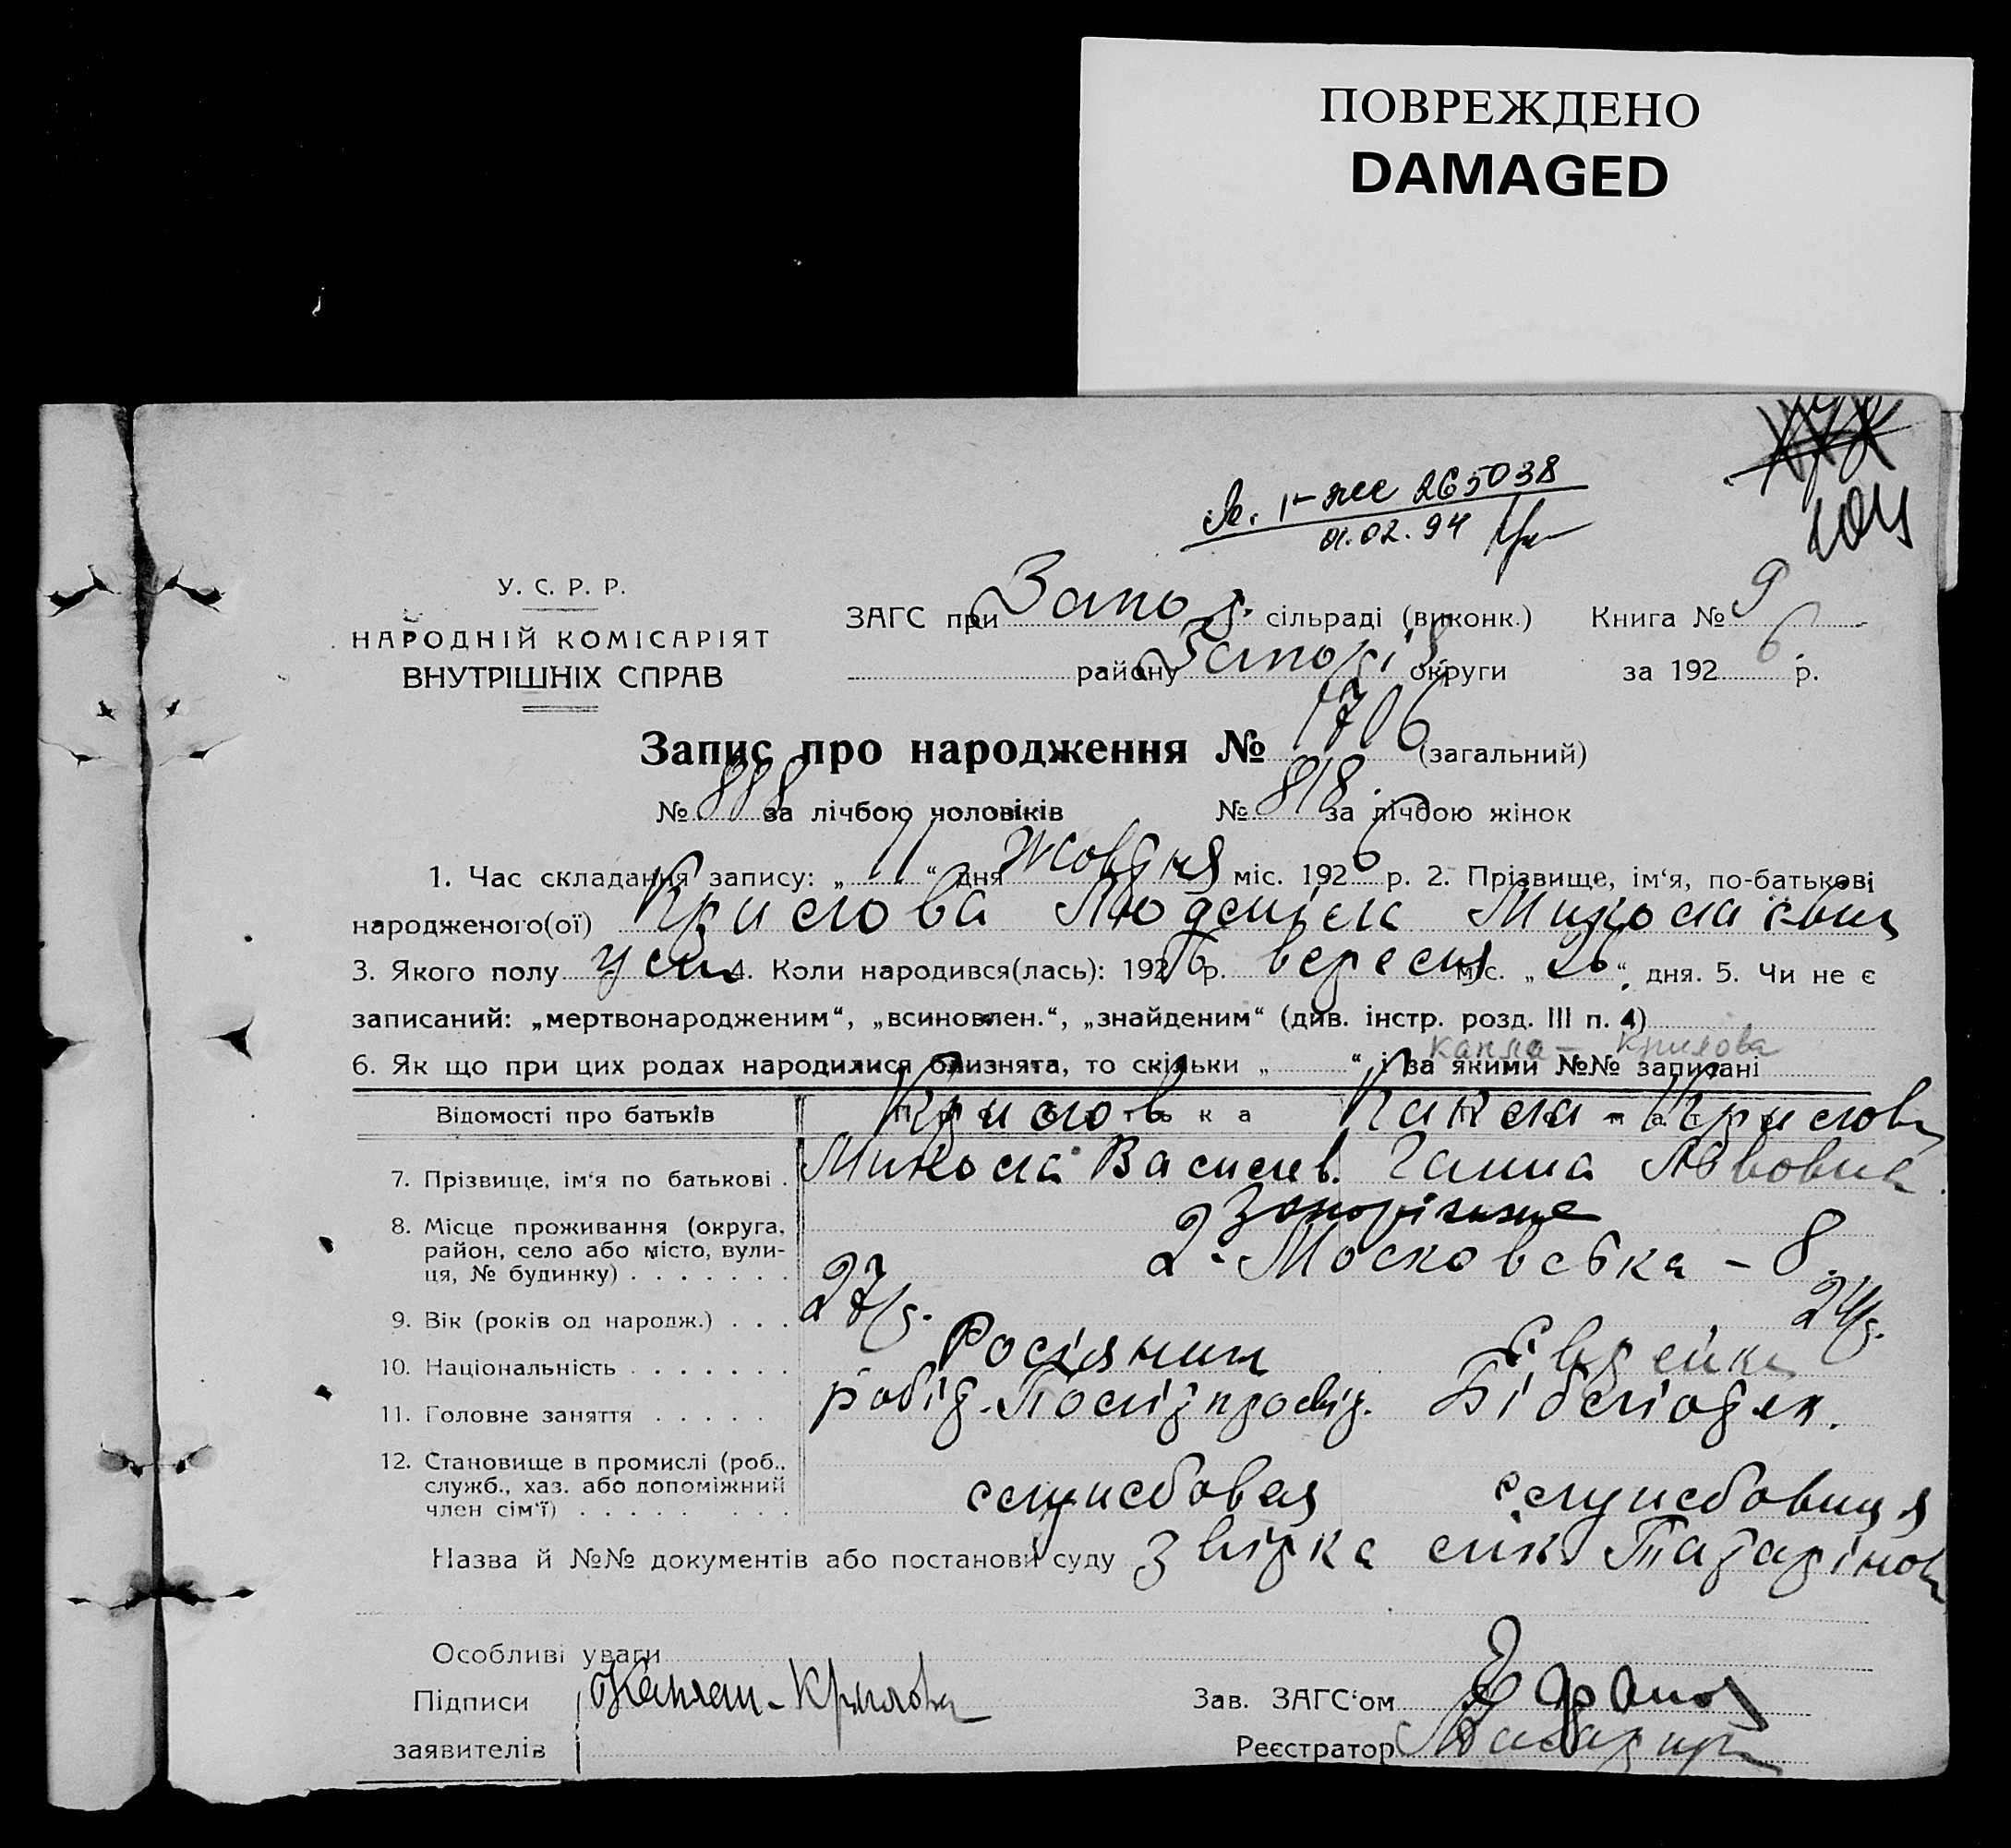 ПОВРЕЖДЕНО
DAMAGED
265038
01.02.94
У. С. Р. Р.
НАРОДНІЙ КОМІСАРІЯТ
ВНУТРІШНІХ СПРАВ
ЗАГС при Запор. сільраді (виконк.) Книга № 9
району Запоріз. округи за 1926 р.
Запис про народження № 1706 (загальний)
№ 888 за лічбою чоловіків № 818. за лічбою жінок
1. Час складання запису: „11“ дня жовтня міс. 1926 р. 2. Прізвище, ім‘я, по-батькові
народженого(ої) Крилова Людміла Миколаївна
3. Якого полу жін. 4. Коли народився(лась): 1926 р. вересня міс. „26“ дня. 5. Чи не є
записаний: „мертвонародженим“, „всиновлен.“, „знайденим“ (див. інстр. розд. III п. 4)
Капла- Крилова
6. Як що при цих родах народилися близнята, то скільки „ “ і за якими №№ записані
Відомості про батьків Крилов Капла-Крилова
7. Прізвище, ім‘я по батькові . Микола Василів. Ганна Львовна
8. Місце проживання (округа, район, село або місто, вулиця, № будинку) Запоріжжє
2-Московська - 8.
9. Вік (років од народж.) 27 р. 24 р.
10. Національність Росіянин Єврейка
11. Головне заняття робід. Політпросвід. Бібліодек.
12. Становище в промислі (роб., служб., хаз. або допоміжний член сім‘ї) службовец службовиця
Назва й №№ документів або постанови суду звірка Татарінов
Особливі уваги
Підписи Каплан-Крылова Зав. ЗАГС‘ом
заявителів Реєстратор